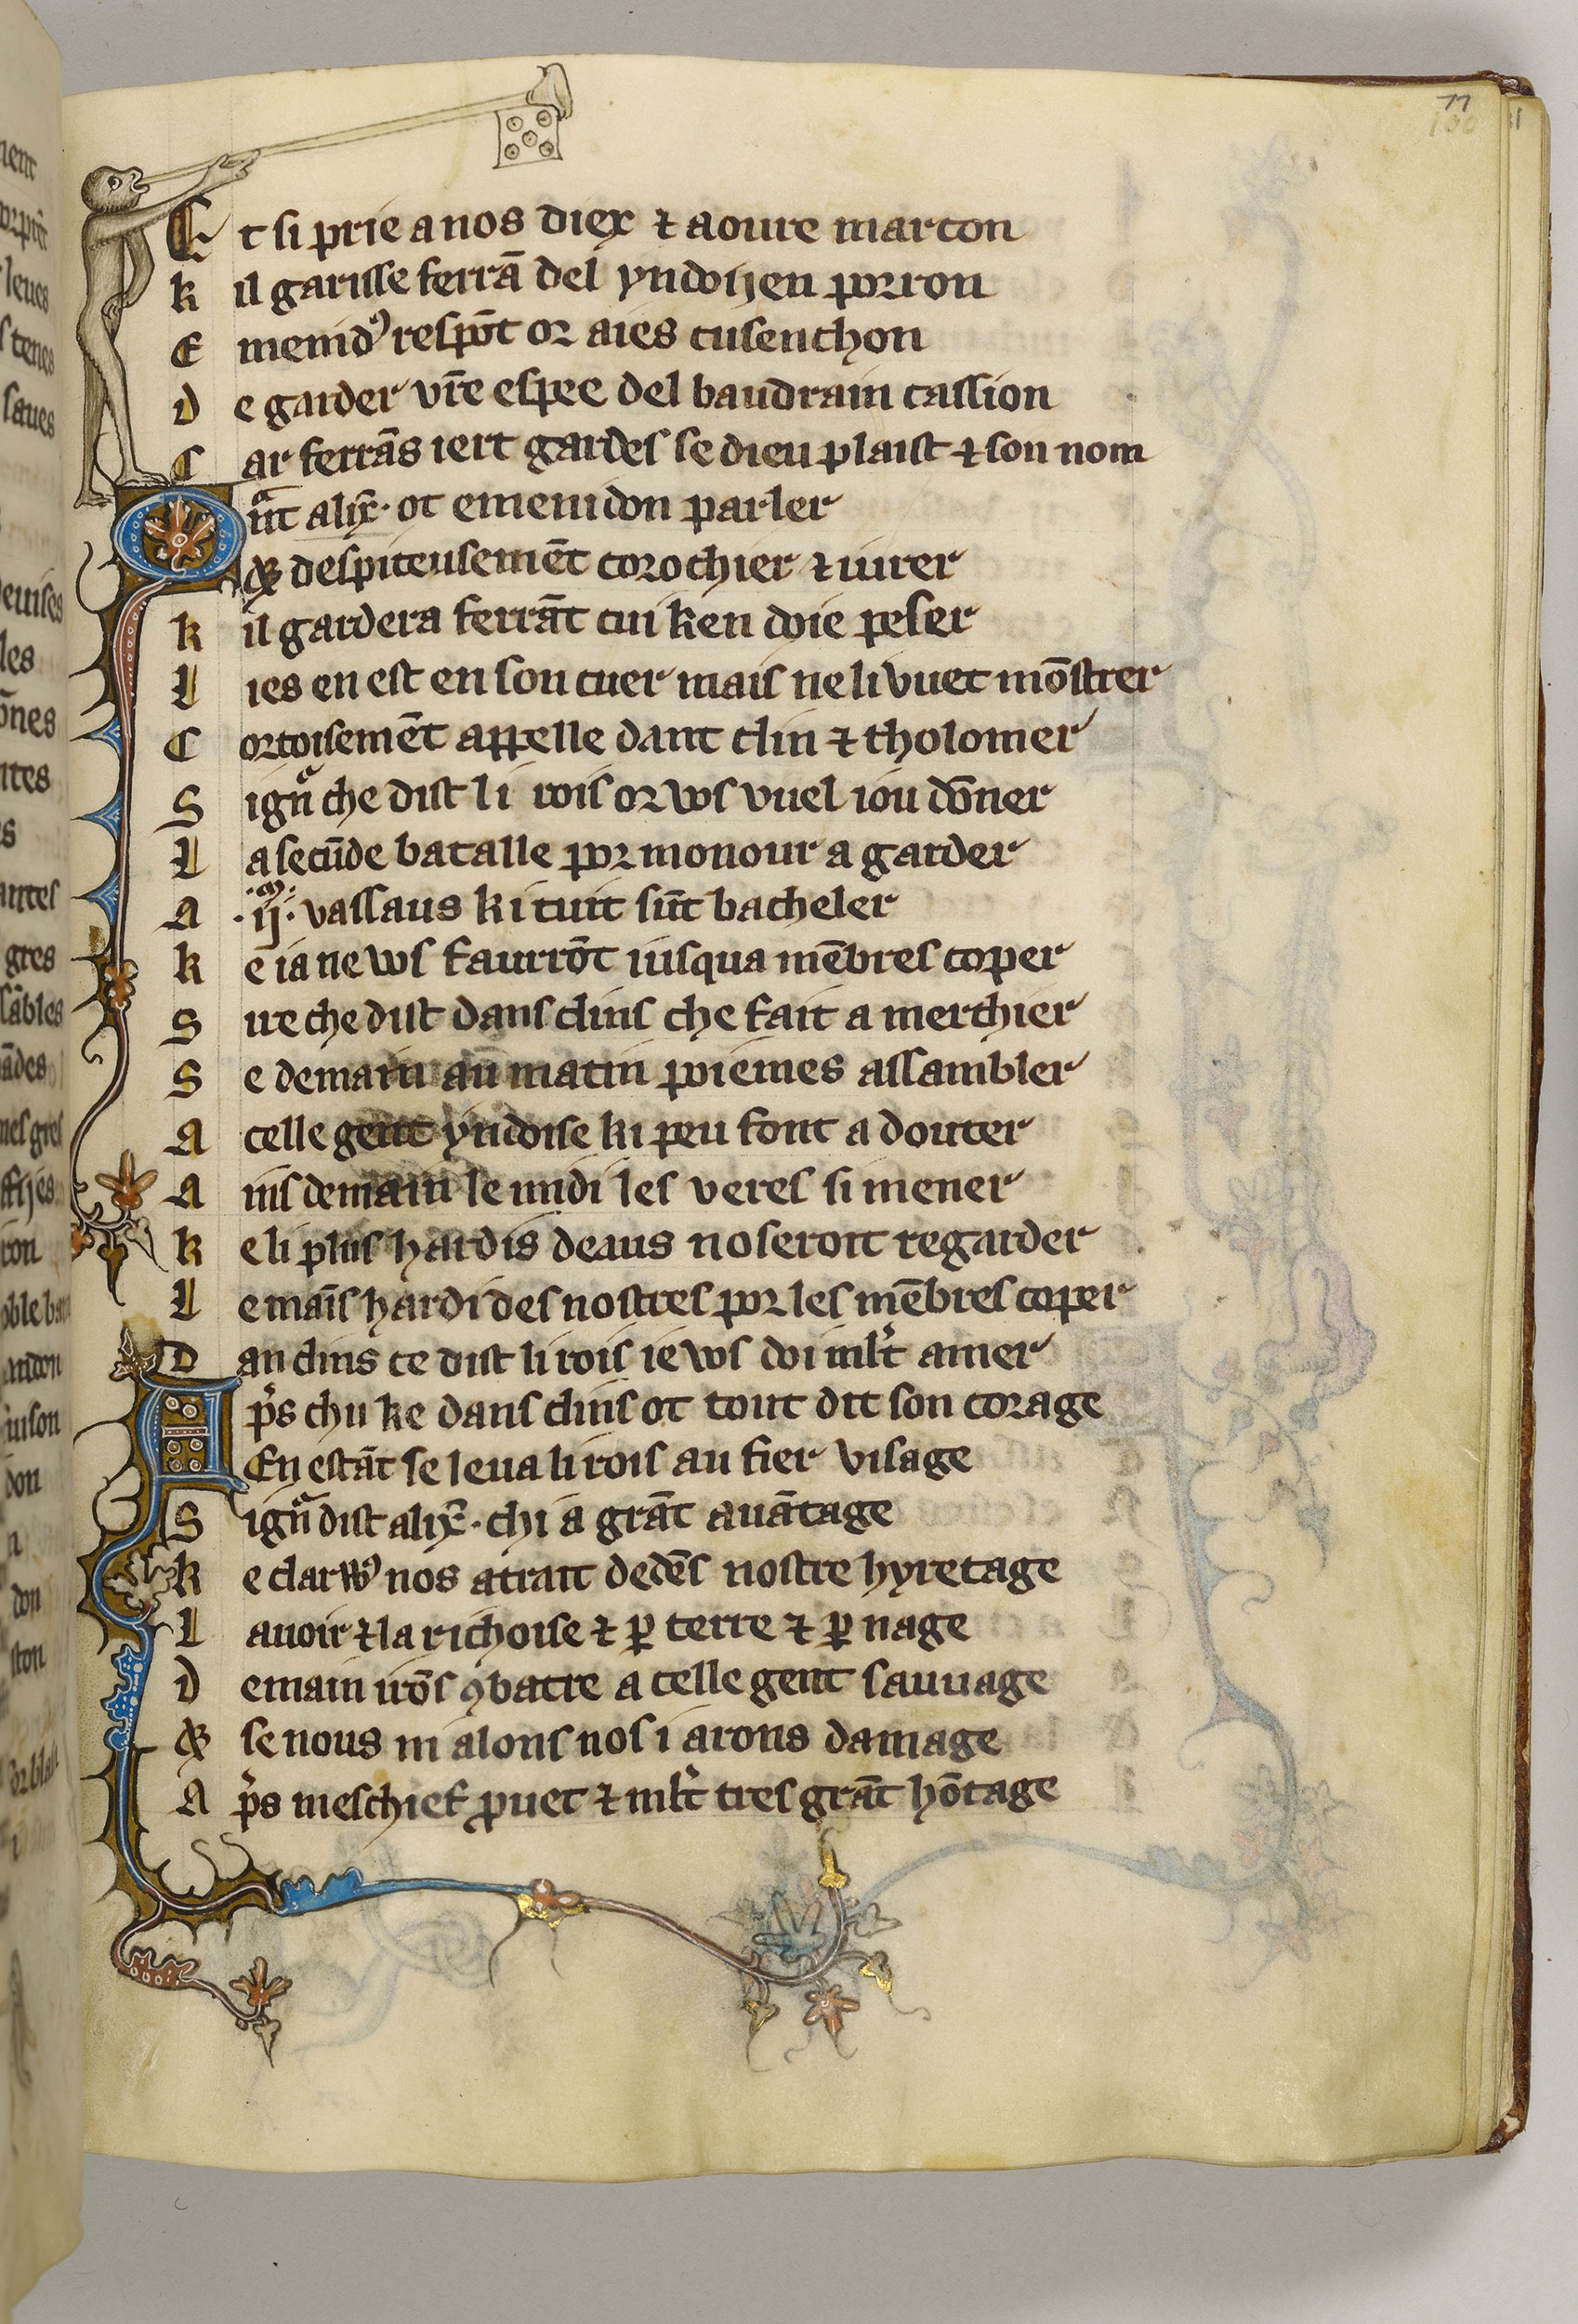 77
100
Et si prie a nos diex ⁊ aoure marcon
k il garisse ferrā del yndoijen porron
E menidꝰ respōt or aies cusenchon
d e garder vr̄e espee del baudrain cassion
C ar ferrās iert gardes se dieu plaist ⁊ son nom
Qᵃnt alix̄· ot emenidon parler
⁊ despiteusemēt corochier ⁊ iurer
k il gardera ferrāt cui ken doie peser
L ies en est en son cuer mais ne li vuet mōstrer
C ortoisemēt appelle dant clin ⁊ tholomer
S ignᵃ che dist li rois or wos vuel iou dōner
L a secūde batalle por monour a garder
A ·ij·ᵐ vassaus ki tuit sūt bacheler
k e ia ne wos faurrōt iusqua mēbres coper
S ire che dist dans clins che fait a merchier
S e demain au matin poiemes assambler
A celle gent yndoise ki peu font a douter
A ins demain le midi les veres si mener
k e li plus hardis deaus noseroit regarder
L e maīs hardi des nostres por les mēbres coper
D an clins ce dist li rois ie wos doi ml̄t amer
Ap̄s chu ke dans clins ot tout dit son corage
En estāt se leua li rois au fier visage
S ignᵃ dist alix̄· chi a grāt auātage
k e clarwꝰ nos atrait dedēs nostre hyretage
L auoir ⁊ la richoise ⁊ ꝑ terre ⁊ ꝑ nage
d emain irōs ꝯbatre a celle gent sauuage
⁊ se nous ni alons nos i arons damage
A p̄s meschief puet ⁊ ml̄t tres grāt hōtage